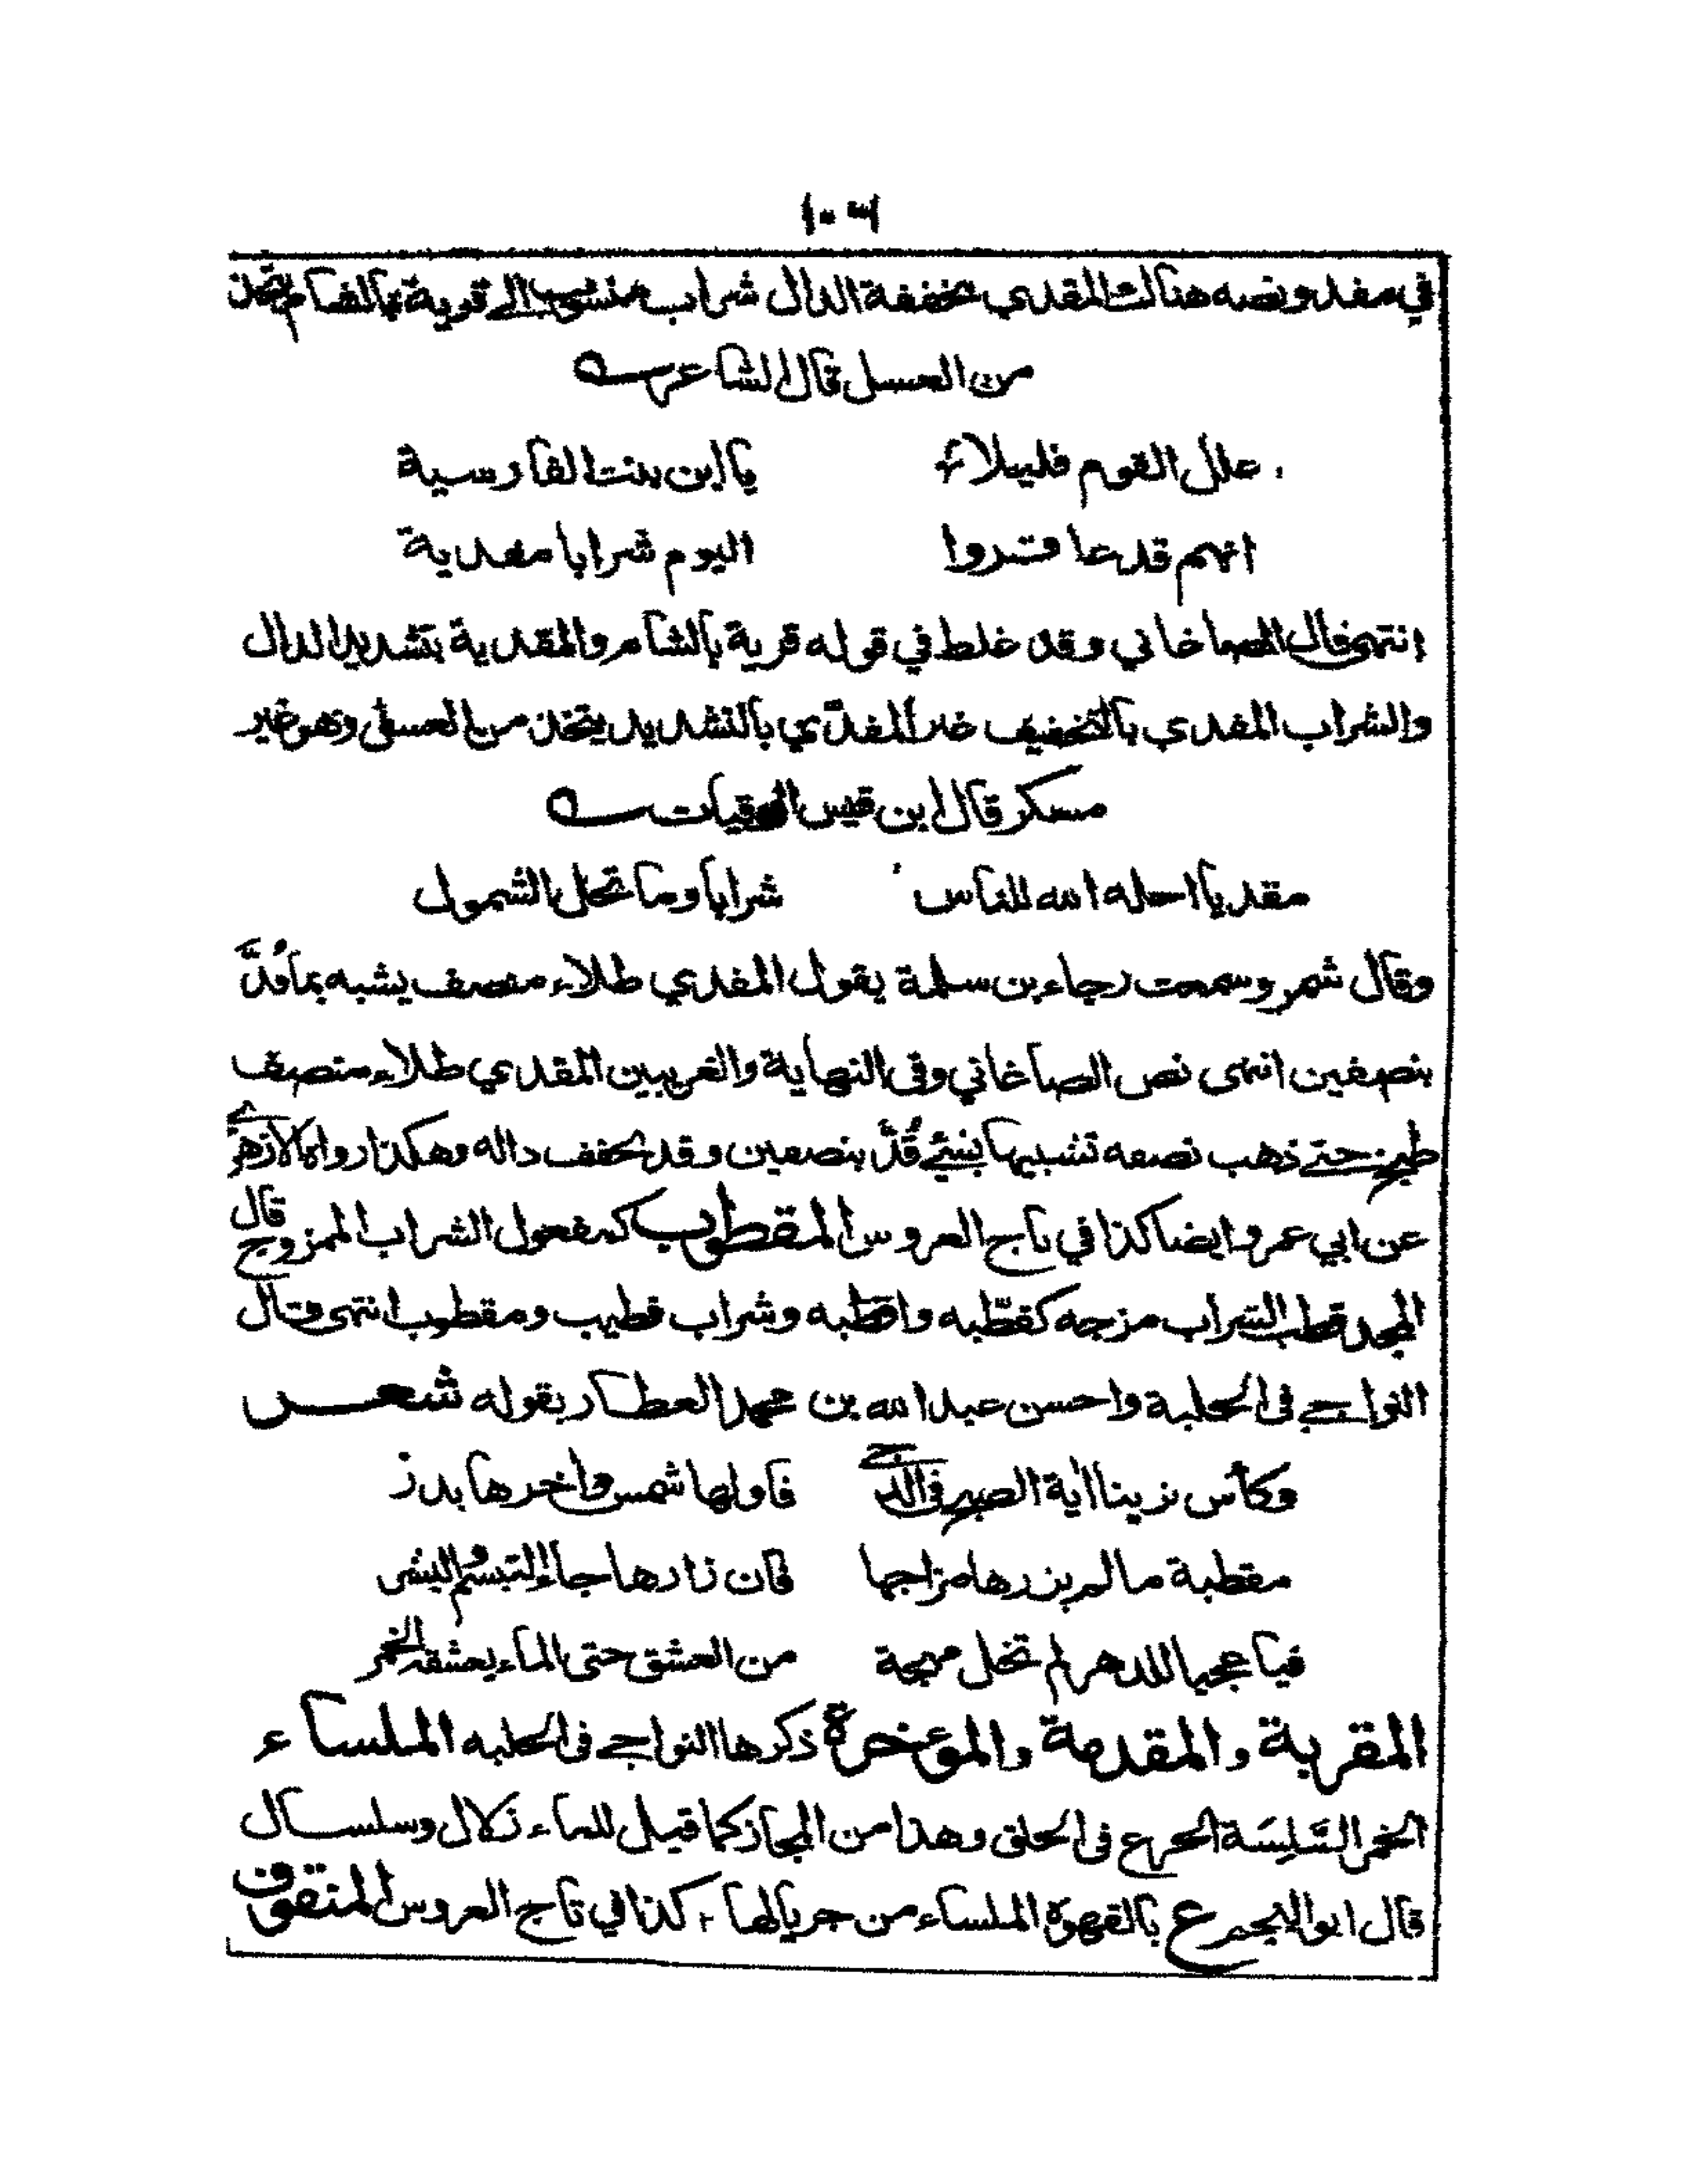 ١٠٣
في مقد ونصه هناك المقدي مخففة الدال شراب منسوب الى قرية بالشام يتخذ
من العسل قال الشاعر
علل القوم قليلا يا ابن بنت الفارسية
انهم قد عاقدوا اليوم شرابا مقدية
انتهى قال الصاخاني وقد غلط في قوله قرية بالشام والمقدية بتشديد الدال
والشراب المقدي بالتخفيف غير المقدّي بالتشديد يتخذ من العسل وهو غير
مسكر قال ابن قيس الرقيات
مقديا احله الله للناس شرابا وما تحل الشمول
وقال شمر وسمعت رجاء بن سلمة يقول المقدي طلاء منصف يشبه بما قُدَّ
بنصفين انتهى نص الصاغاني وفى النهاية والغريبين المقدي طلاء منصف
طبخ حتى ذهب نصفه تشبيها بشئ قُدَّ بنصفين وقد تخفف داله وهكذا رواه الازهري
عن ابي عمرو ايضا كذا في تاج العروس المقطوب كمفعول الشراب الممزوج قال
المجد قطب الشراب مزجه كقطّبه واقطبه وشراب قطيب ومقطوب انتهى وقال
النواجي فى الحلبة واحسن عبد الله بن محمد العطار بقوله شعر
وكأس ترينا اية الصبح فى الدجى فاولها شمس واخرها بدر
مقطبة ما لم يزرها مزاجها فان زارها جاء التبسم والبشر
فيا عجبا للدهر لم تخل مهجة من العشق حتى الماء يعشقه الخمر
المقربة والمقدمة والمؤخرة ذكرها النواجي فى الحلبه الملساء
الخمر السَّلِسَة الجرع فى الحلق وهذا من المجاز كما قيل للماء زلال وسلسال
قال ابو النجم ع بالقهوة الملساء من جريالها، كذا في تاج العروس